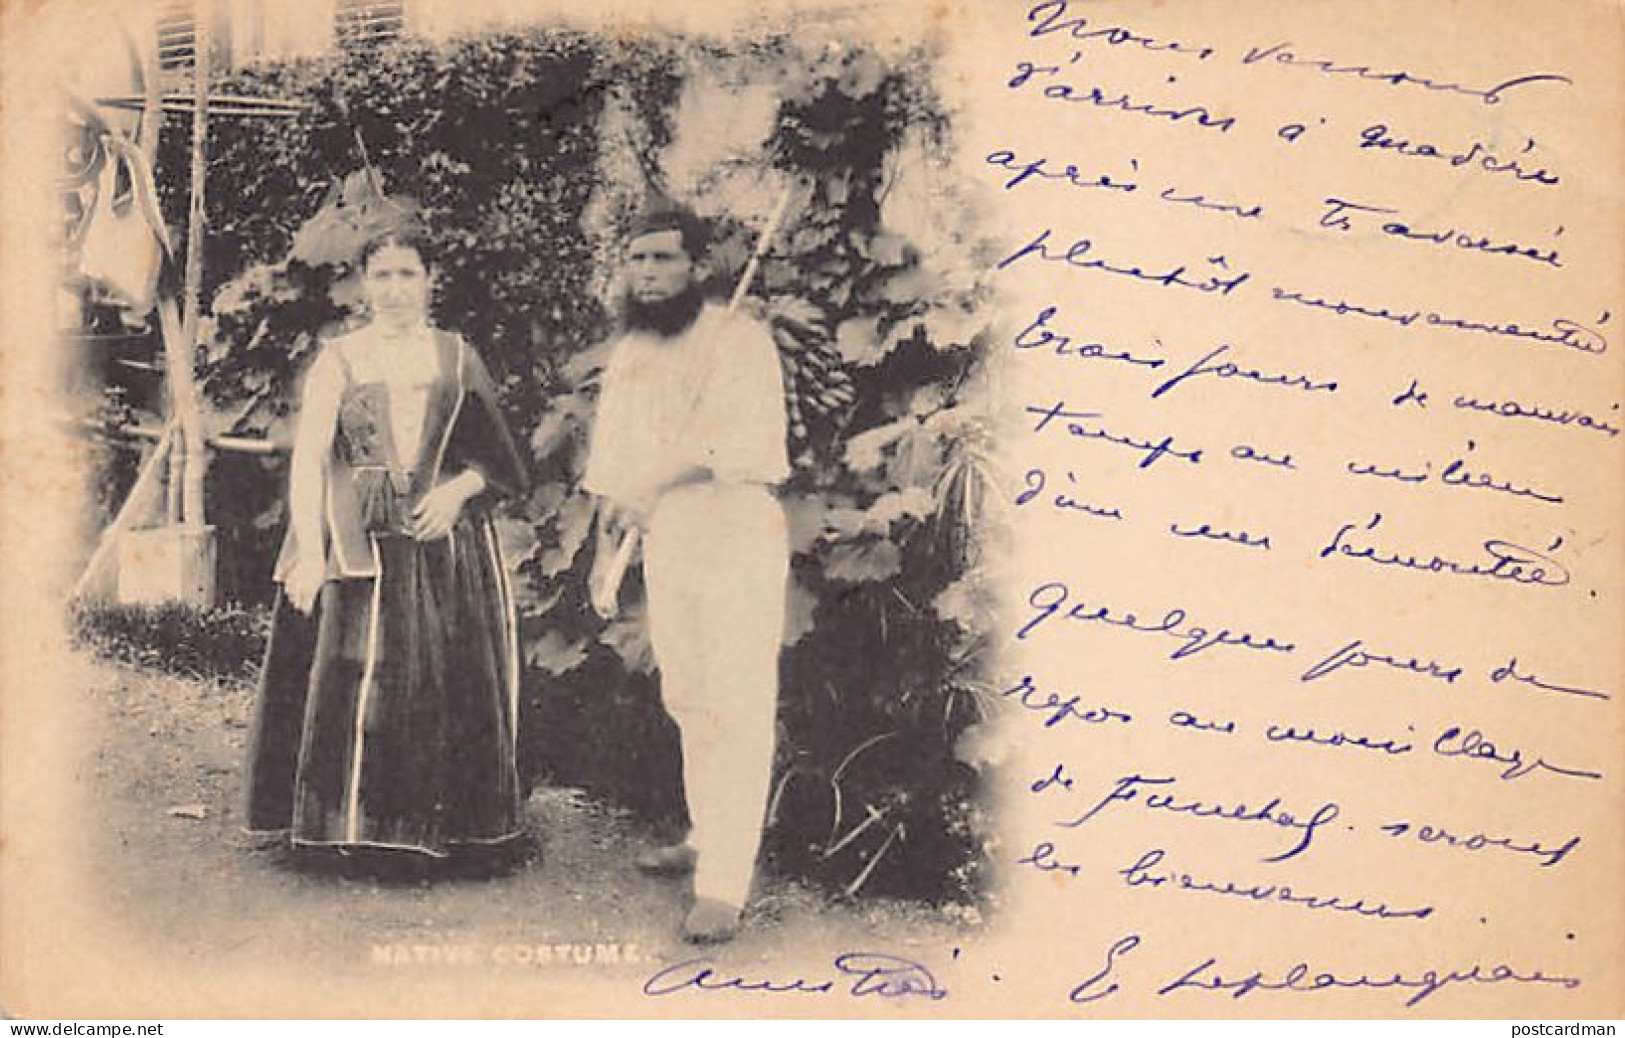 Nous venons
d'arriver à Madère
après une Traversée
plutôt mouvementée
trois jours de mauvais
temps au milieu
d'une mer démontée.
Quelques jours de
repos au mois
de Funchal. seront
les bienvenus.
Amitiés. E
NATIVE COSTUME.
www.delcampe.net
postcardman